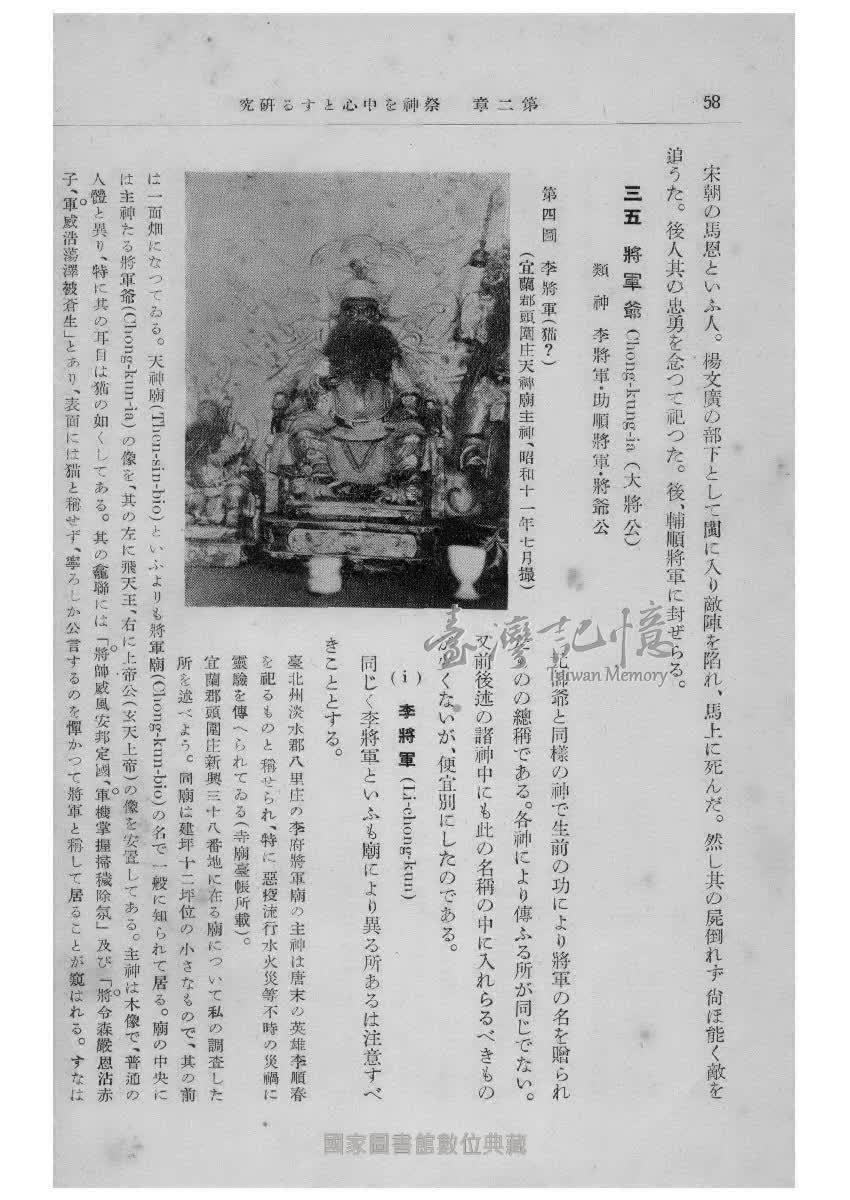 58
第二章 祭神を中心とする研究
宋朝の馬恩といふ人。楊文廣の部下として閩に入り敵陣を陷れ、馬上に死んだ。然し其の屍倒れず尙ほ能く敵を
追うた。後人其の忠勇を念つて祀つた。後、輔順將軍に封ぜらる。
三五 將軍爺 Chong-kung-ia (大將公)
類神 李將軍・助順將軍・將爺公
第四圖 李將軍(猫?)
(宜蘭郡頭圍庄天神廟主神、昭和十一年七月撮)
爺と同樣の神で生前の功により將軍の名を贈られ
ものの總稱である。各神により傳ふる所が同じでない。
又前後述の諸神中にも此の名稱の中に入れらるべきもの
が少くないが、便宜別にしたのである。
(i) 李將軍 (Li-chong-kun)
同じく李將軍といふも廟により異る所あるは注意すべ
きこととする。
臺北州淡水郡八里庄の李府將軍廟の主神は唐末の英雄李順春
を祀るものと稱せられ、特に惡疫流行水火災等不時の災禍に
靈驗を傳へられてゐる(寺廟臺帳所載)。
宜蘭郡頭圍庄新興三十八番地に在る廟について私の調査した
所を述べよう。同廟は建坪十二坪位の小さなもので、其の前
は一面畑になつてゐる。天神廟(Then-sin-bio)といふよりも將軍廟(Chong-kun-bio)の名で一般に知られて居る。廟の中央に
は主神たる將軍爺(Chong-kun-ia)の像を、其の左に飛天王、右に上帝公(玄天上帝)の像を安置してある。主神は木像で、普通の
人體と異り、特に其の耳目は猫の如くしてある。其の龕聯には「將帥威風安邦定國、軍機掌握掃穢除氛」及び「將令森嚴恩沾赤
子、軍威浩蕩澤被蒼生」とあり、表面には猫と稱せず、寧ろしか公言するのを憚かつて將軍と稱して居ることが窺はれる。すなは
臺灣記憶
Taiwan Memory
國家圖書館數位典藏